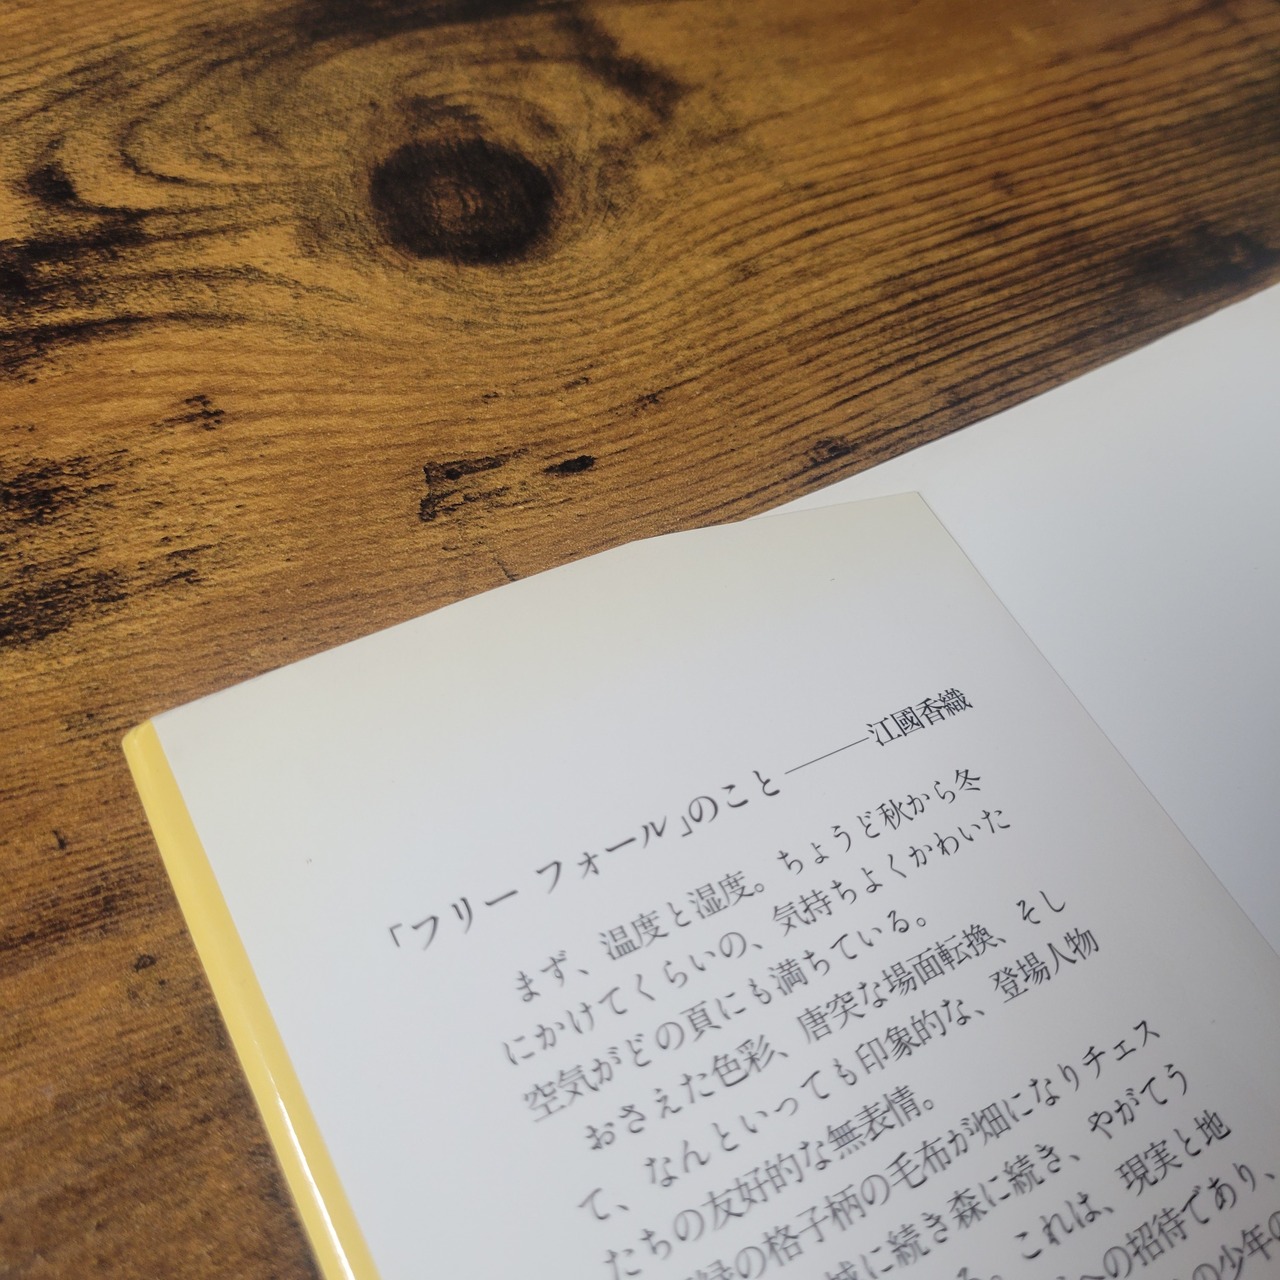 「フリー フォール」のこと――江國香織
まず、温度と湿度。ちょうど秋から冬
にかけてくらいの、気持ちよくかわいた
空気がどの頁にも満ちている。
おさえた色彩、唐突な場面転換、そし
て、なんといっても印象的な、登場人物
たちの友好的な無表情。
緑の格子柄の毛布が畑になりチェス
城に続き森に続き、やがてう
る。これは、現実と地
への招待であり、
の少年の